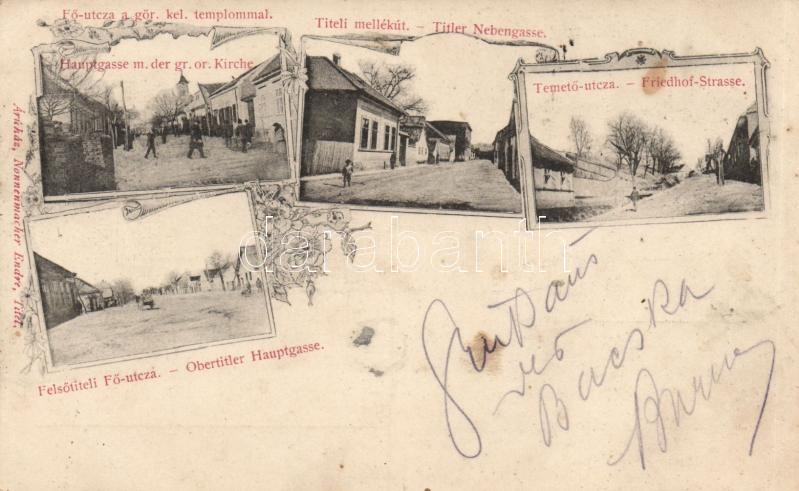 Fő-utcza a gör. kel. templommal.
Hauptgasse m. der gr. or. Kirche.
Titeli mellékút. – Titler Nebengasse.
Temető-utcza. – Friedhof-Strasse.
Áruház, Nonnenmacher Endre, Titel.
Felsőtiteli Fő-utcza. – Obertitler Hauptgasse.
darabanth.com
Bacska